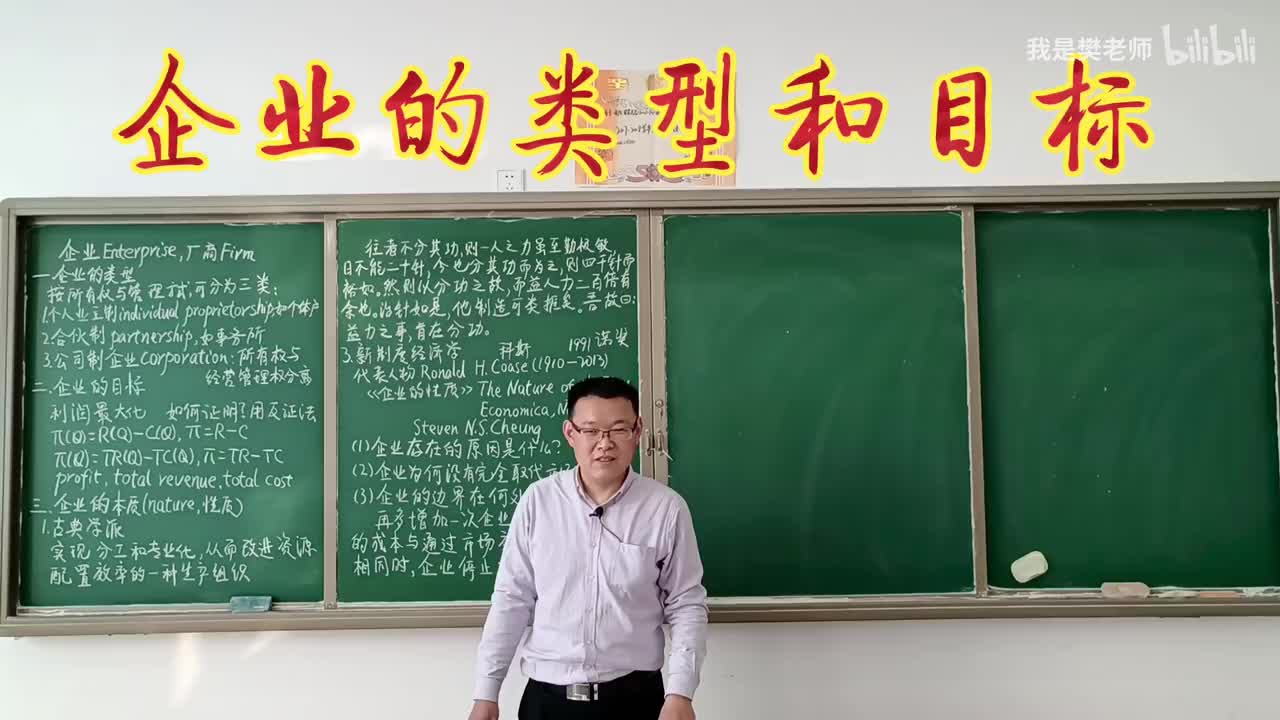 我是樊老师 bilibili
企业的类型和目标
企业Enterprise,厂商Firm
一.企业的类型
按所有权与管理方式,可分为三类:
1.个人业主制individual proprietorship,如个体户
2.合伙制partnership,如事务所
3.公司制企业corporation:所有权与
经营管理权分离
二.企业的目标
利润最大化 如何证明?用反证法
π(Q)=R(Q)-C(Q),π=R-C
π(Q)=TR(Q)-TC(Q),π=TR-TC
profit, total revenue,total cost
三.企业的本质(nature,性质)
1.古典学派
实现分工和专业化,从而改进资源
配置效率的一种生产组织
往者不分其功,则一人之力虽至勤极敏,
日不能二十针,今也分其功而为之,则四千针而
裕如。然则以分功之故,而益人力二百倍有
余也。治针如是,他制造可类推矣。吾故曰:
益力之事,首在分功。
3.新制度经济学 科斯 1991诺奖
代表人物Ronald H.Coase(1910-2013)
《企业的性质》The Nature of
Economica,
Steven N.S.Cheung
(1)企业存在的原因是什么?
(2)企业为何没有完全取代市
(3)企业的边界在何处
再多增加一次企业
的成本与通过市场
相同时,企业停止